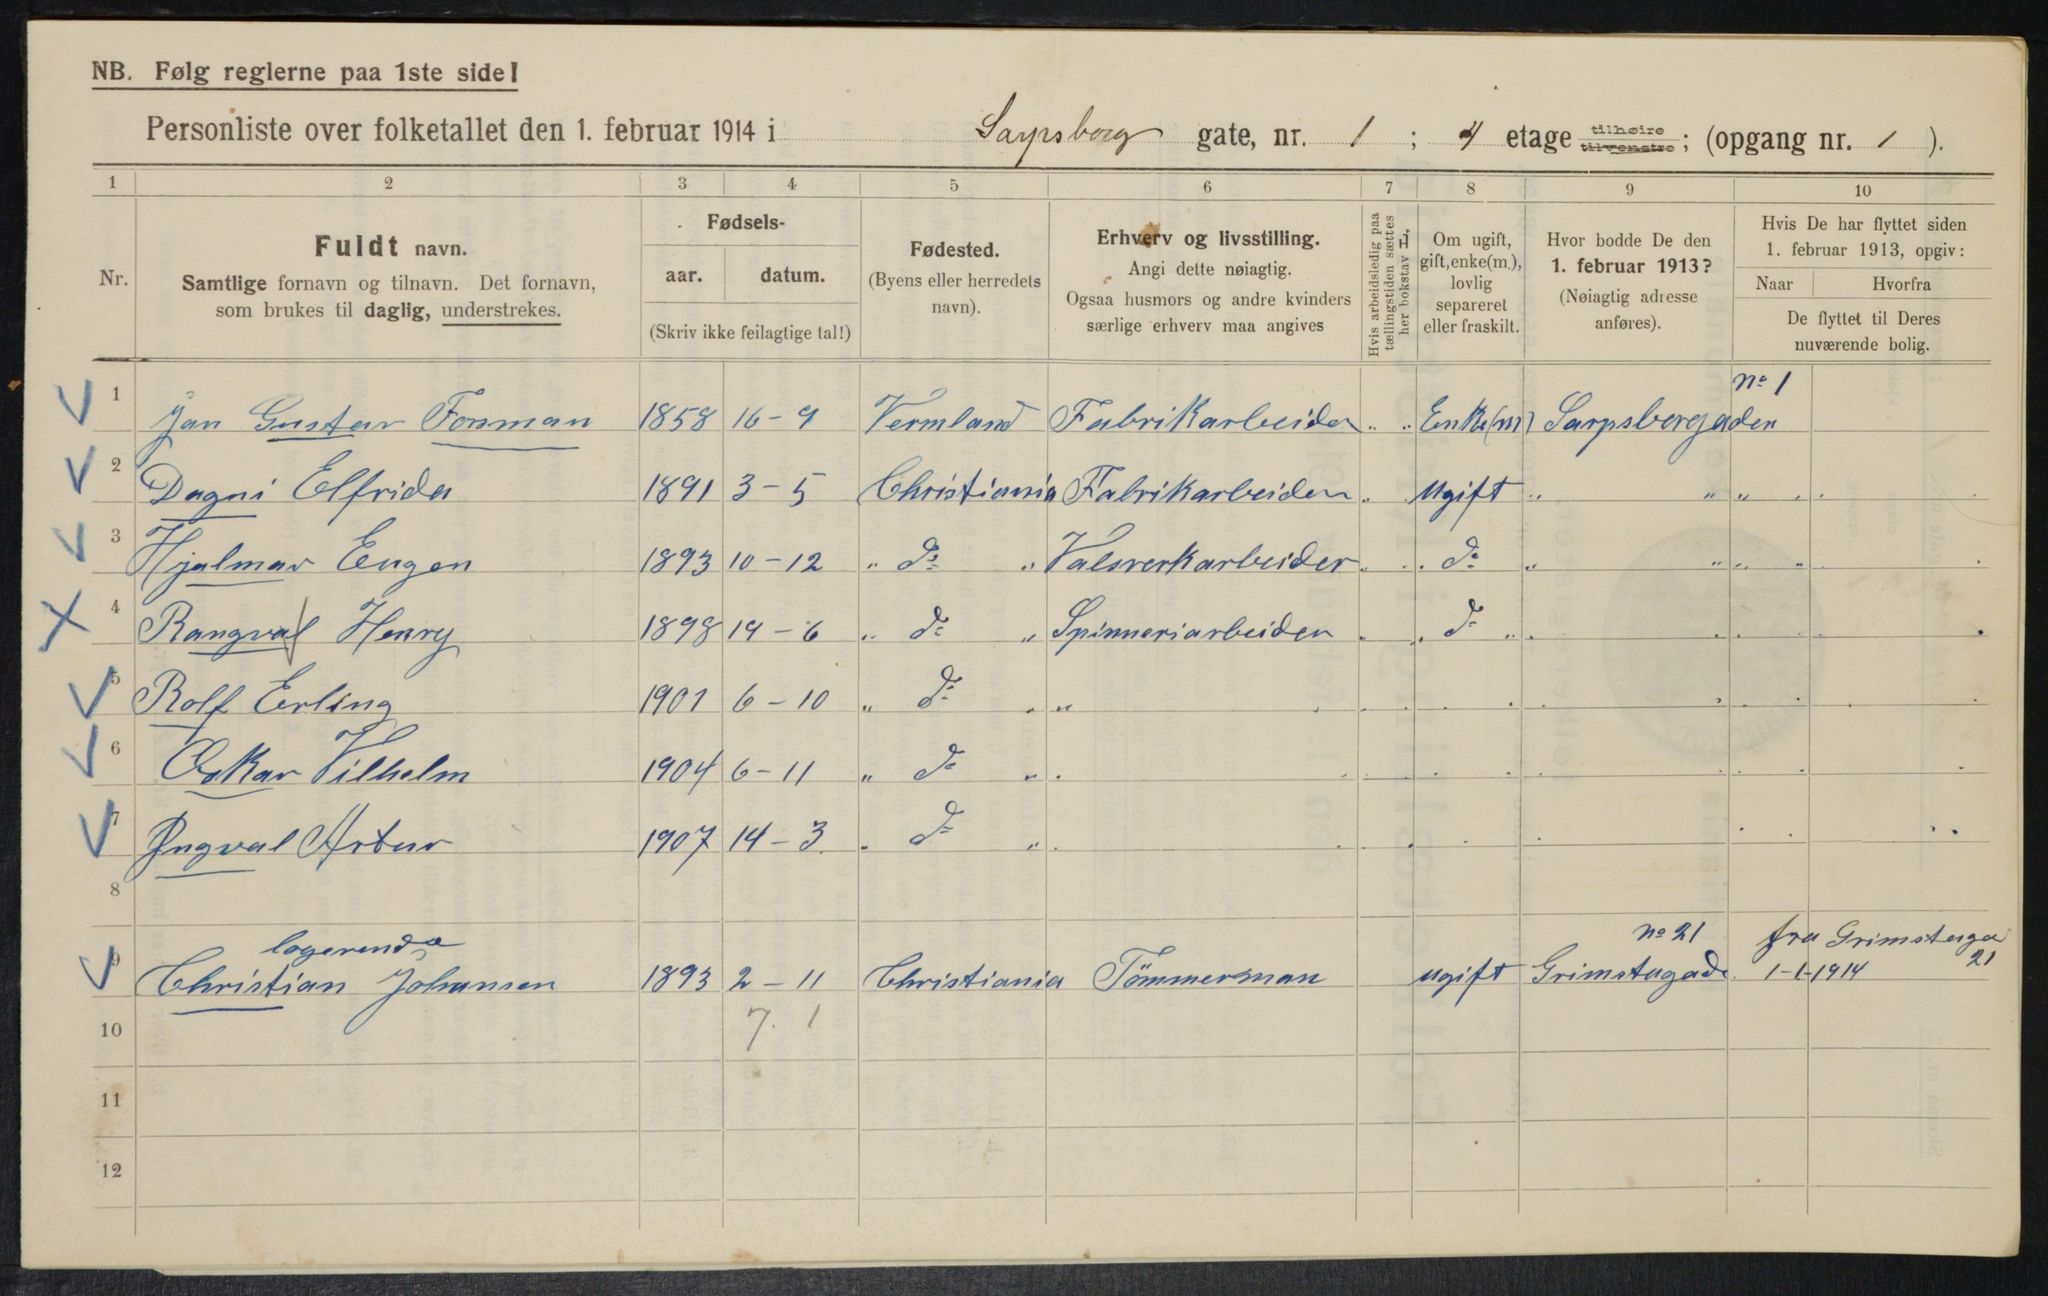 NB. Følg reglerne paa 1ste side!
Personliste over folketallet den 1. februar 1914 i Sarpsborg gate, nr. 1 ; 4 etage tilhøire tilvenstre; (opgang nr. 1 ).
1 2 3 4 5 6 7 8 9 10
Nr.
Fuldt navn.
Samtlige fornavn og tilnavn. Det fornavn,
som brukes til daglig, understrekes.
Fødsels-
aar. datum.
(Skriv ikke feilagtige tal!)
Fødested.
(Byens eller herredets
navn).
Erhverv og livsstilling.
Angi dette nøiagtig.
Ogsaa husmors og andre kvinders
særlige erhverv maa angives
Hvis arbeidsledig paa
tællingstiden sættes
her bokstav H,
Om ugift,
gift, enke(m.),
lovlig
separeret
eller fraskilt.
Hvor bodde De den
1. februar 1913?
(Nøiagtig adresse
anføres).
Hvis De har flyttet siden
1. februar 1913, opgiv:
Naar Hvorfra
De flyttet til Deres
nuværende bolig.
No 1
1 Jan Gustav Forsman 1858 16-9 Vermland Fabrikarbeider " " Enke(m) Sarpsborgaden
2 Dagni Elfrida 1891 3-5 Christiania Fabrikarbeider " Ugift " " " " "
3 Hjalmar Eugen 1893 10-12 " do " Valsverkarbeider " " do " " " "
4 Rangval Henry 1898 19-6 " do " Spinneriarbeider " " do "
5 Rolf Erling 1901 6-10 " do " "
6 Oskar Vilhelm 1904 6-11 " do "
7 Yngval Artur 1907 14-3 " do "
8
logerende No 21 fra Grimstaga
9 Christian Johansen 1893 2-11 Christiania Tömmerman Ugift Grimstagade 1-1-1914 21
10 7. 1
11
12